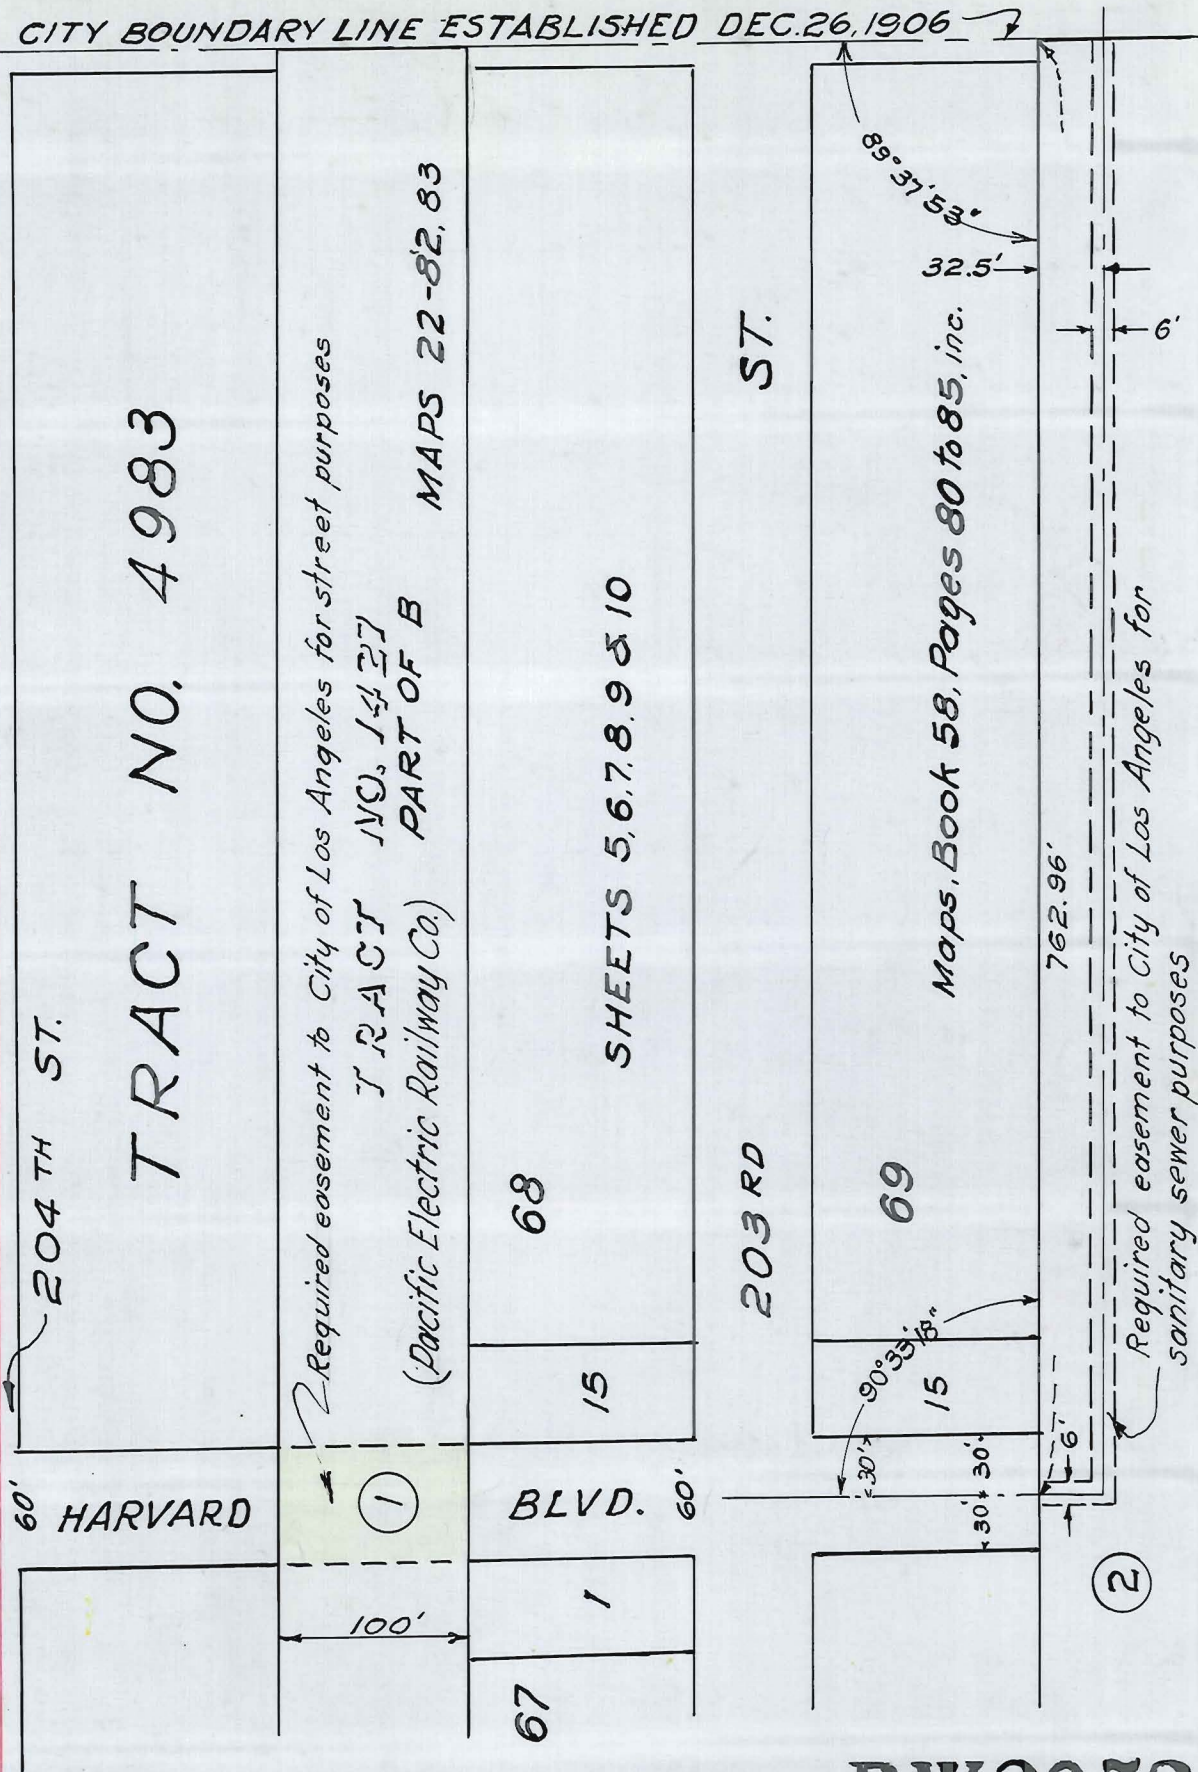 CITY BOUNDARY LINE ESTABLISHED DEC. 26, 1906
204 TH ST.
TRACT NO. 4983
Required easement to City of Los Angeles for street purposes
TRACT NO. 1427
PART OF B
MAPS 22-82, 83
(Pacific Electric Railway Co.)
68
SHEETS 5, 6, 7, 8, 9 & 10
15
203 RD ST.
69
Maps, Book 58, Pages 80 to 85, inc.
89° 37' 53"
32.5'
6'
762.96'
90° 33' 18"
15
30'
30' 30'
6'
Required easement to City of Los Angeles for
sanitary sewer purposes
60'
HARVARD
1
BLVD.
60'
2
100'
1
67